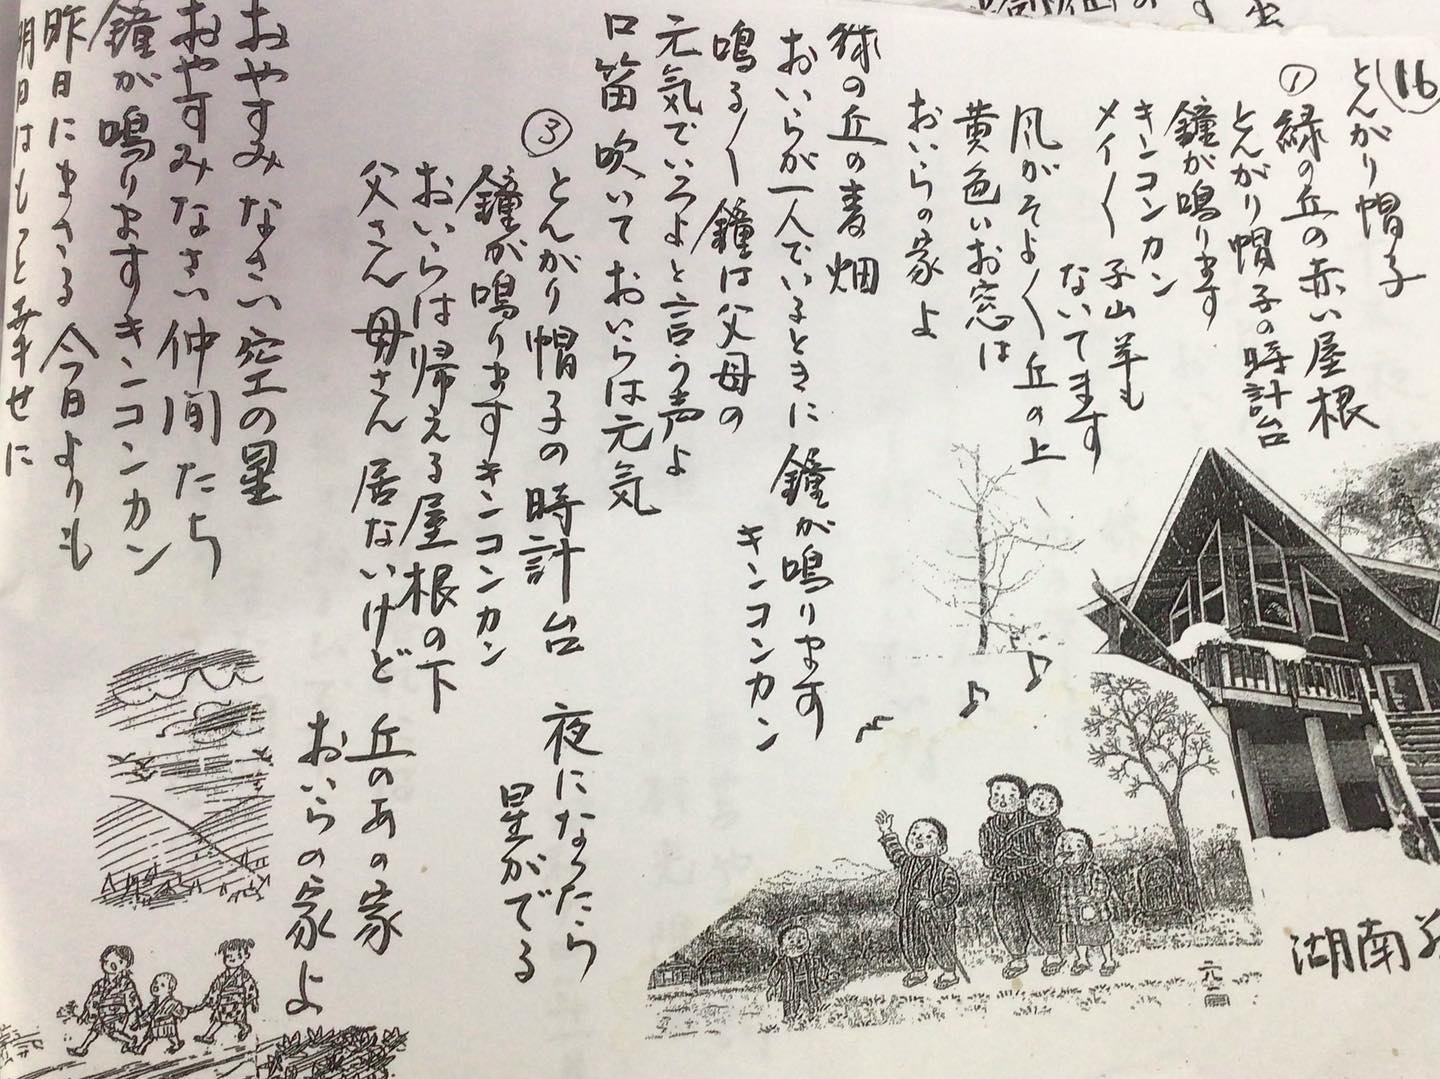 16
とんがり帽子
① 緑の丘の赤い屋根
とんがり帽子の時計台
鐘が鳴ります
キンコンカン
メイ〱 子山羊も
ないてます
風がそよ〱 丘の上
黄色いお窓は
おいらの家よ
緑の丘の麦畑
おいらが一人でいるときに 鐘が鳴ります
キンコンカン
鳴る〱 鐘は父母の
元気でいろよと言う声よ
口笛吹いておいらは元気
③ とんがり帽子の時計台 夜になったら
星がでる
鐘が鳴りますキンコンカン
おいらは帰える屋根の下
父さん母さん居ないけど 丘のあの家
おいらの家よ
おやすみなさい空の星
おやすみなさい仲間たち
鐘が鳴りますキンコンカン
昨日にまさる今日よりも
明日はもっと幸せに
湖南